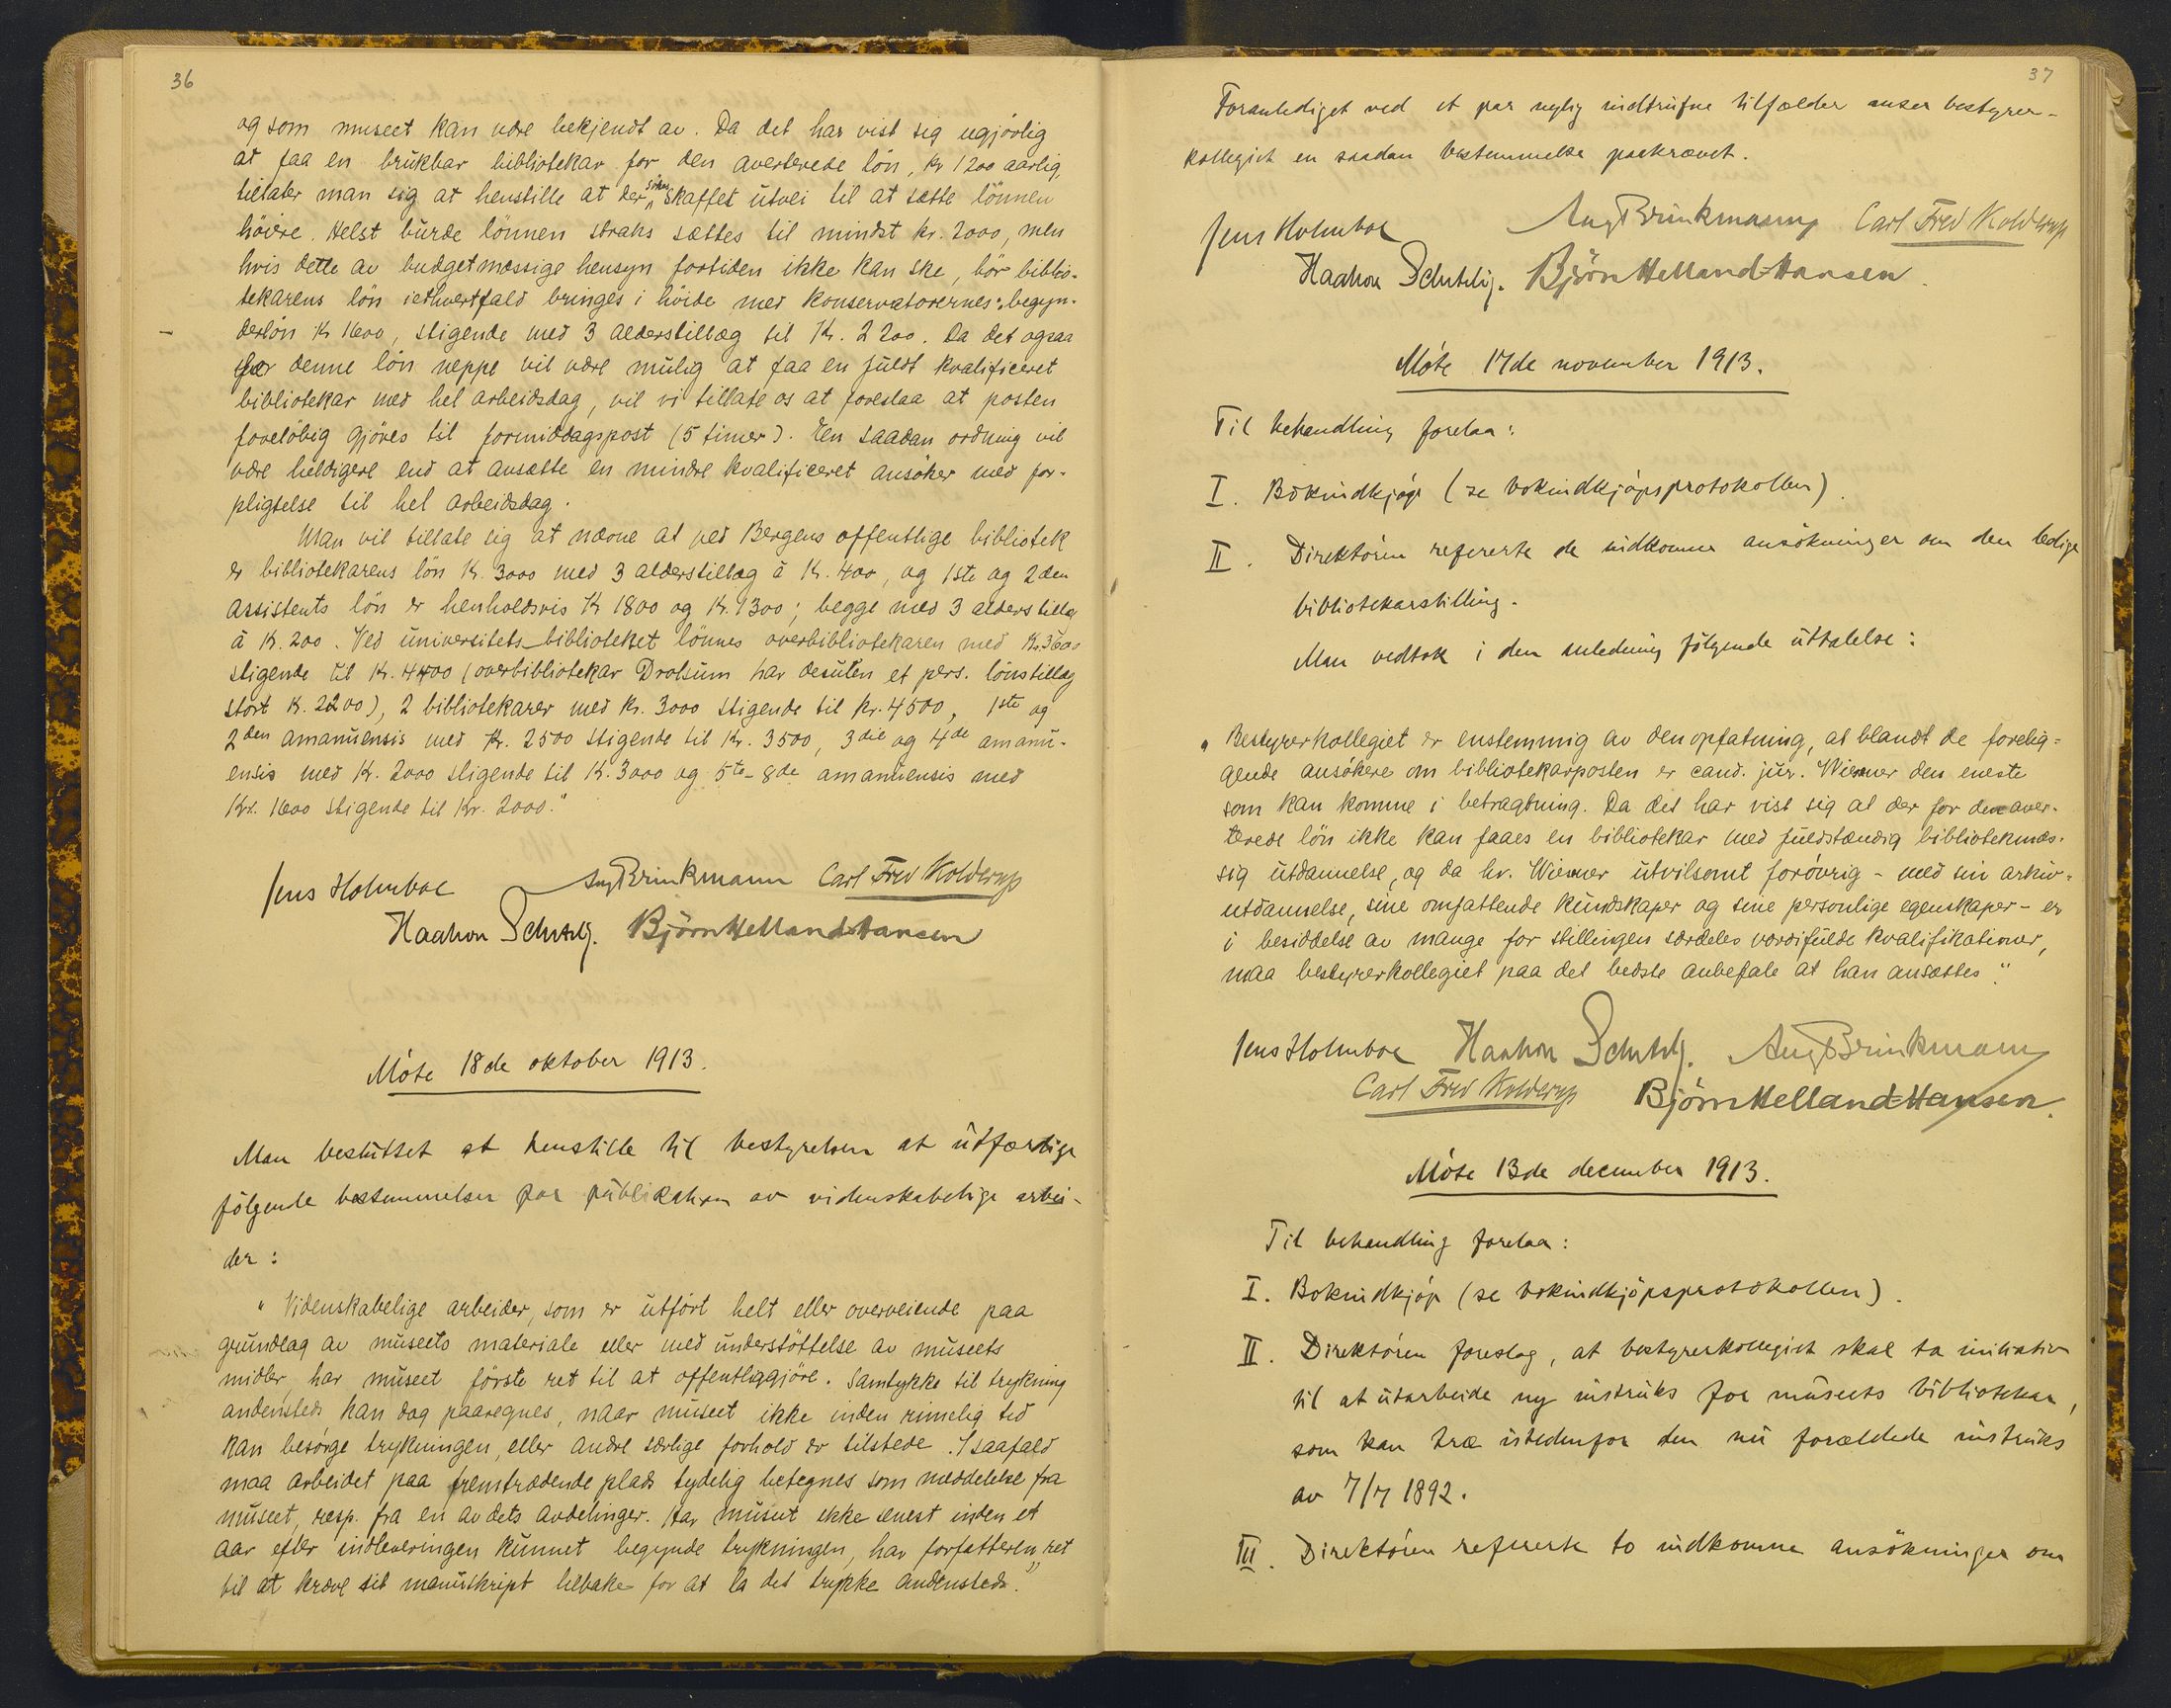 36
og som museet kan være bekjendt av. Da det har vist sig ugjörlig
at faa en brukbar bibliotekar for den averterede lön, kr 1200 aarlig,
tillater man sig at henstille at der sökes skaffet utvei til at sætte lönnen
höiere. Helst burde lönnen straks sættes til mindst kr. 2000, men
hvis dette av budgetmæssige hensyn fortiden ikke kan ske, bör biblio-
tekarens lön iethvertfald bringes i höide med konservatorernes: begyn-
derlön kr 1600, stigende med 3 alderstillæg til Kr. 2200. Da det ogsaa
for denne lön neppe vil være mulig at faa en fuldt kvalificeret
bibliotekar med hel arbeidsdag, vil vi tillate os at foreslaa at posten
forelöbig gjöres til formiddagspost (5 timer). En saadan ordning vil
være heldigere end at ansætte en mindre kvalificeret ansöker med for-
pligtelse til hel arbeidsdag.
Man vil tillate sig at nævne at ved Bergens offentlige bibliotek
er bibliotekarens lön Kr. 3000 med 3 alderstillæg à Kr. 400, og 1ste og 2den
assistents lön er henholdsvis Kr 1800 og Kr. 1300; begge med 3 alderstillæg
à Kr. 200. Ved universitets-biblioteket lönnes overbibliotekaren med Kr. 3600
stigende til Kr. 4400 (overbibliotekar Drolsum har desuten et pers. lönstillæg
stort Kr. 2200), 2 bibliotekarer med Kr. 3000 stigende til Kr. 4500, 1ste og
2den amanuensis med Kr. 2500 stigende til Kr. 3500, 3die og 4de amanu-
ensis med Kr. 2000 stigende til Kr. 3000 og 5te-8de amanuensis med
Kr. 1600 stigende til Kr. 2000."
Jens Holmboe Aug Brinkmann Carl Fred Kolderup
Haakon Schetelig. Björn Helland-Hansen
Möte 18de oktober 1913.
Man besluttet at henstille til bestyrelsen at utfærdige
fölgende bestemmelser for publikation av videnskabelige arbei-
der:
"Videnskabelige arbeider, som er utfört helt eller overveiende paa
grundlag av museets materiale eller med understöttelse av museets
midler, har museet förste ret til at offentliggjöre. Samtykke til trykning
andensteds kan dog paaregnes, naar museet ikke inden rimelig tid
kan besörge trykningen, eller andre særlige forhold er tilstede. I saafald
maa arbeidet paa fremtrædende plads tydelig betegnes som meddelelse fra
museet, resp. fra en av dets avdelinger. Har museet ikke senest inden et
aar efter indleveringen kunnet begynde trykningen, har forfatteren ret
til at kræve sit manuskript tilbake for at la det trykke andensteds."
37
Foranlediget ved et par nylig indtrufne tilfælder anser bestyrer-
kollegiet en saadan bestemmelse paakrævet.
Jens Holmboe Aug Brinkmann Carl Fred Kolderup
Haakon Schetelig. Björn Helland-Hansen.
Möte 17de november 1913.
Til behandling forelaa:
I. Bokindkjöp (se bokindkjöpsprotokollen).
II. Direktören refererte de indkomne ansökninger om den ledige
bibliotekarstilling.
Man vedtok i den anledning fölgende uttalelse:
"Bestyrerkollegiet er enstemmig av den opfatning, at blandt de forelig-
gende ansökere om bibliotekarposten er cand. jur. Wiesener den eneste
som kan komme i betragtning. Da det har vist sig at der for den aver-
terede lön ikke kan faaes en bibliotekar med fuldstændig bibliotekmæs-
sig utdannelse, og da hr. Wiesener utvilsomt forövrig - med sin arkiv-
utdannelse, sine omfattende kundskaper og sine personlige egenskaper - er
i besiddelse av mange for stillingen særdeles værdifulde kvalifikationer,
maa bestyrerkollegiet paa det bedste anbefale at han ansættes."
Jens Holmboe Haakon Schetelig. Aug Brinkmann
Carl Fred Kolderup Björn Helland-Hansen.
Möte 13de december 1913.
Til behandling forelaa:
I. Bokindkjöp (se bokindkjöpsprotokollen).
II. Direktören foreslog, at bestyrerkollegiet skal ta initiativ
til at utarbeide ny instruks for museets bibliotekar,
som kan træ istedenfor den nu forældede instruks
av 7/7 1892.
III. Direktören refererte to indkomne ansökninger om